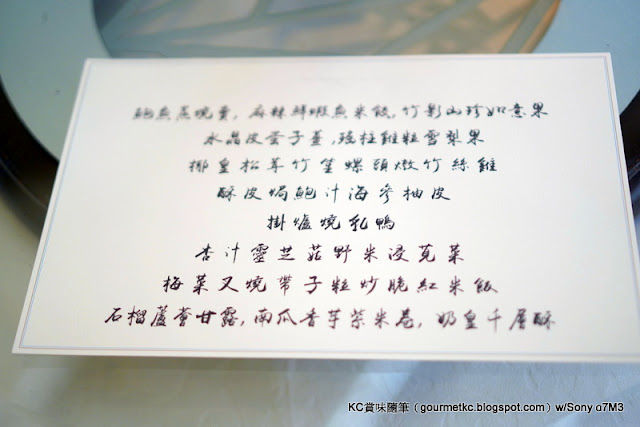 鮑魚蒸燒賣, 麻辣鮮蝦魚米餃, 竹影山珍如意果
水晶皮蛋子薑, 瑤柱雞粒雪梨果
椰皇松茸竹笙螺頭燉竹絲雞
酥皮焗鮑汁海參柚皮
掛爐燒乳鴨
杏汁靈芝菇野米浸莧菜
梅菜叉燒帶子粒炒脆紅米飯
石榴蘆薈甘露, 南瓜香芋紫米卷, 奶皇千層酥
KC賞味隨筆（gourmetkc.blogspot.com）w/Sony α7M3